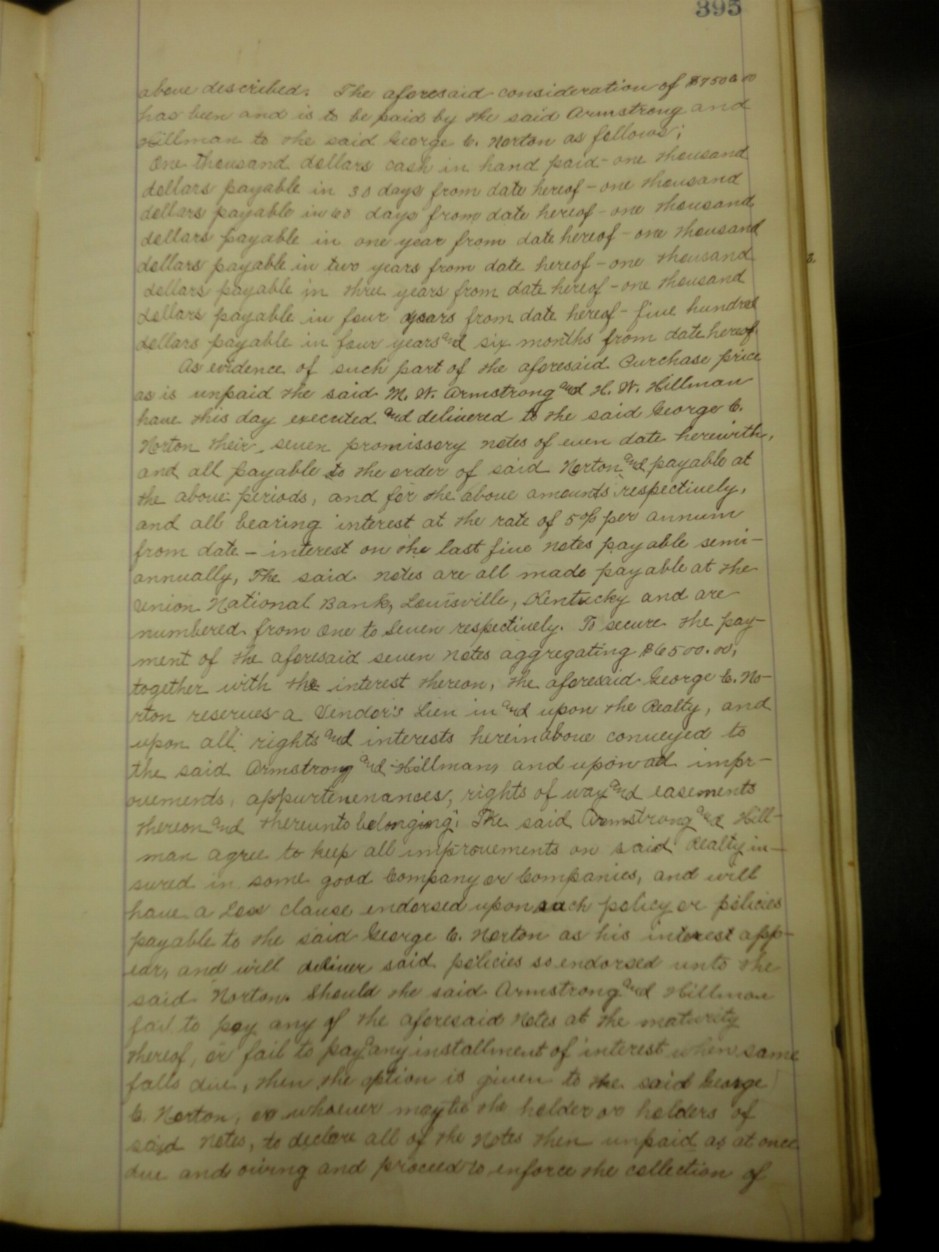 395
above described. The aforesaid consideration of $7500.00
has been and is to be paid by the said Armstrong and
Hillman to the said George C. Norton as follows;
One thousand dollars cash in hand paid - one thousand
dollars payable in 30 days from date hereof - one thousand
dollars payable in 60 days from date hereof - one thousand
dollars payable in one year from date hereof - one thousand
dollars payable in two years from date hereof - one thousand
dollars payable in three years from date hereof - one thousand
dollars payable in four years from date hereof - five hundred
dollars payable in four years and six months from date hereof.
As evidence of such part of the aforesaid Purchase price
as is unpaid the said M. W. Armstrong and H. W. Hillman
have this day executed and delivered to the said George C.
Norton their seven promissory notes of even date herewith,
and all payable to the order of said Norton and payable at
the above periods, and for the above amounts respectively,
and all bearing interest at the rate of 5% per annum
from date - interest on the last five notes payable semi-
annually, The said notes are all made payable at the
Union National Bank, Louisville, Kentucky and are
numbered from One to Seven respectively. To secure the pay-
ment of the aforesaid seven notes aggregating $6500.00,
together with the interest thereon, the aforesaid George C. No-
rton reserves a Vendor's Lien in and upon the Realty, and
upon all rights and interests hereinabove conveyed to
the said Armstrong and Hillman, and upon all impr-
ovements, appurtenenances, rights of way and easements
thereon and thereunto belonging. The said Armstrong and Hill-
man agree to keep all improvements on said Realty in-
sured in some good Company or Companies, and will
have a Loss clause endorsed upon such policy or policies
payable to the said George C. Norton as his interest app-
ear, and will deliver said policies so endorsed unto the
said Norton. Should the said Armstrong and Hillman
fail to pay any of the aforesaid notes at the maturity
thereof, or fail to pay any installment of interest when same
falls due, then the option is given to the said George
C. Norton, or whoever may be the holder or holders of
said notes, to declare all of the notes then unpaid as at once
due and owing and proceed to enforce the collection of
s.